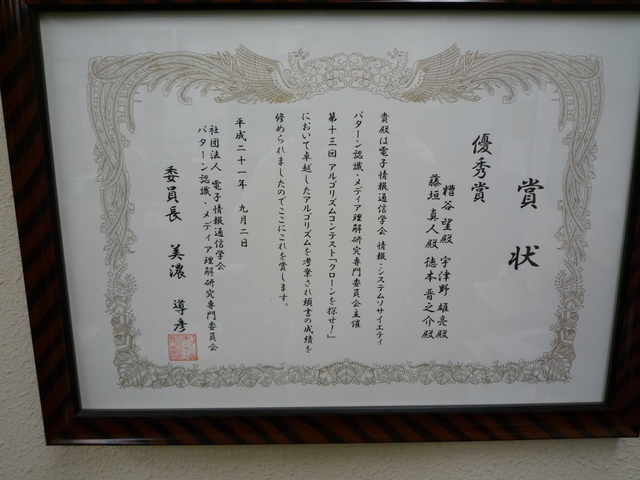 賞状
優秀賞
糟谷 望殿 宇津野 雄亮殿
藤垣 真人殿 徳本 晋之介殿
貴殿は電子情報通信学会 情報・システムソサイエティ
パターン認識・メディア理解研究専門委員会主催
第十三回 アルゴリズムコンテスト「クローンを探せ!」
において卓越したアルゴリズムを考案され頭書の成績を
修められましたのでここにこれを賞します。
平成二十一年 九月二日
社団法人 電子情報通信学会
パターン認識・メディア理解研究専門委員会
委員長 美濃 導彦